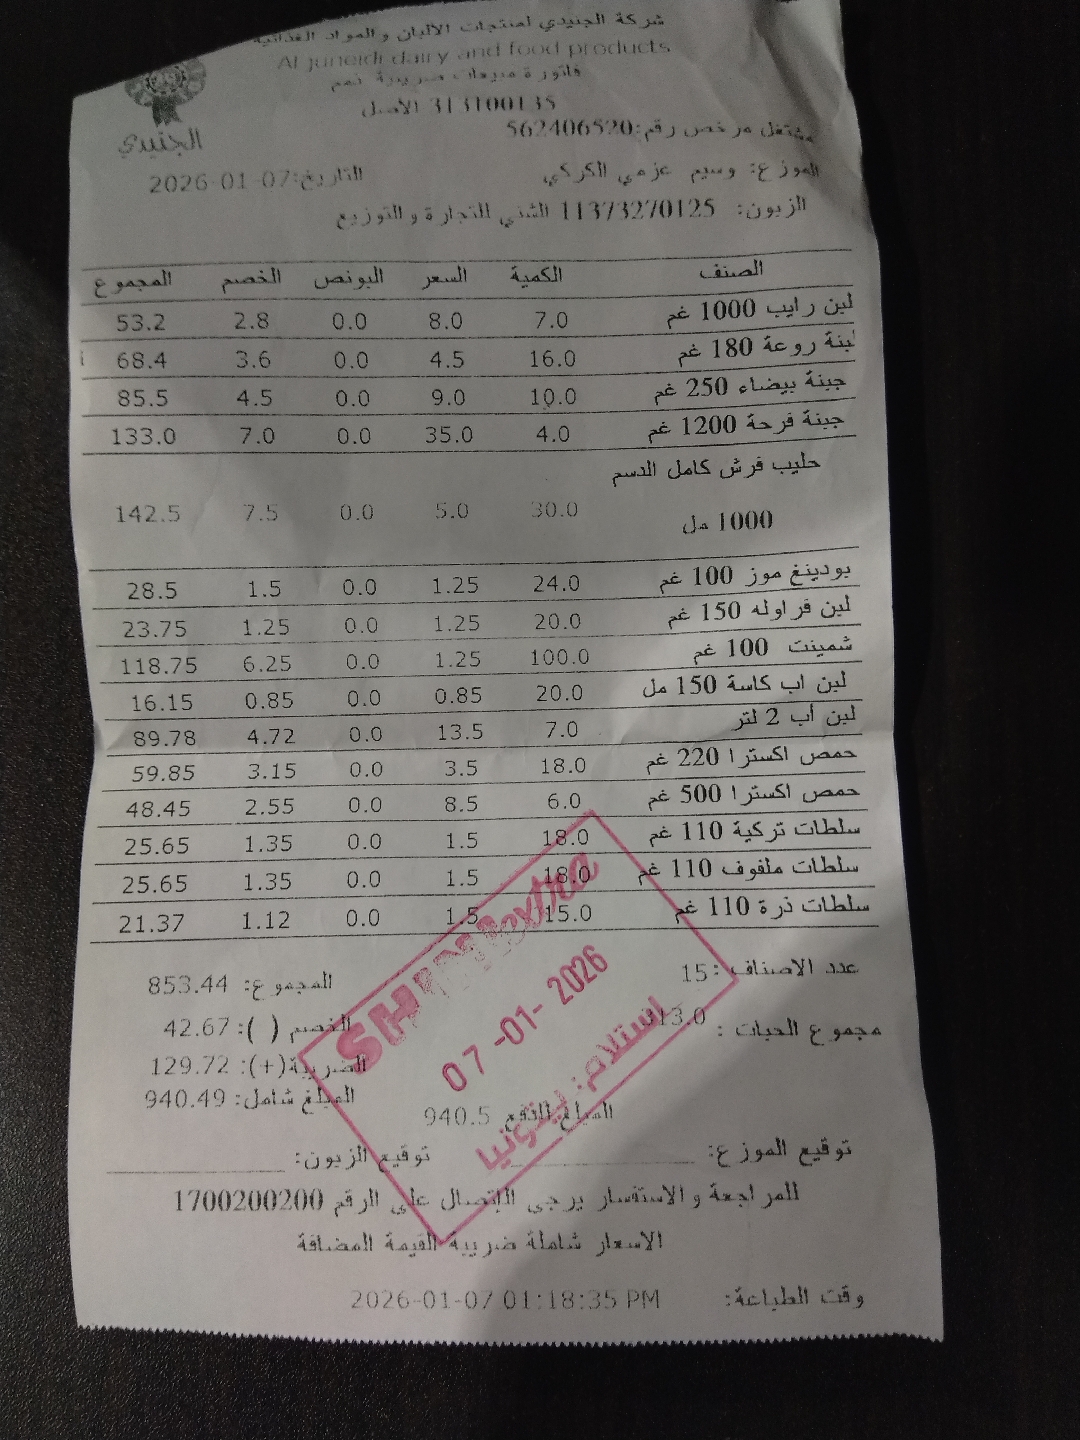 شركة الجنيدي لمنتجات الألبان والمواد الغذائية
Al juneidi dairy and food products
فاتورة مبيعات ضريبية نعم
313100135 الأصل
الجنيدي
مشتغل مرخص رقم:562406520
الموزع: وسيم عزمي الكركي التاريخ:2026-01-07
الزبون: 11373270125 الشني للتجارة والتوزيع
الصنف الكمية السعر البونص الخصم المجموع
لبن رايب 1000 غم 7.0 8.0 0.0 2.8 53.2
لبنة روعة 180 غم 16.0 4.5 0.0 3.6 68.4
جبنة بيضاء 250 غم 10.0 9.0 0.0 4.5 85.5
جبنة فرحة 1200 غم 4.0 35.0 0.0 7.0 133.0
حليب فرش كامل الدسم
1000 مل 30.0 5.0 0.0 7.5 142.5
بودينغ موز 100 غم 24.0 1.25 0.0 1.5 28.5
لبن فراوله 150 غم 20.0 1.25 0.0 1.25 23.75
شمينت 100 غم 100.0 1.25 0.0 6.25 118.75
لبن اب كاسة 150 مل 20.0 0.85 0.0 0.85 16.15
لبن أب 2 لتر 7.0 13.5 0.0 4.72 89.78
حمص اكسترا 220 غم 18.0 3.5 0.0 3.15 59.85
حمص اكسترا 500 غم 6.0 8.5 0.0 2.55 48.45
سلطات تركية 110 غم 18.0 1.5 0.0 1.35 25.65
سلطات ملفوف 110 غم 18.0 1.5 0.0 1.35 25.65
سلطات ذرة 110 غم 15.0 1.5 0.0 1.12 21.37
عدد الاصناف: 15 المجموع: 853.44
مجموع الحبات: 313.0 الخصم ( ): 42.67
الضريبة(+): 129.72
المبلغ شامل: 940.49
المبلغ للدفع 940.5
extra
07-01-2026
استلام: بيتونيا
توقيع الموزع: توقيع الزبون:
للمراجعة والاستفسار يرجى الإتصال على الرقم 1700200200
الاسعار شاملة ضريبة القيمة المضافة
وقت الطباعة: 2026-01-07 01:18:35 PM